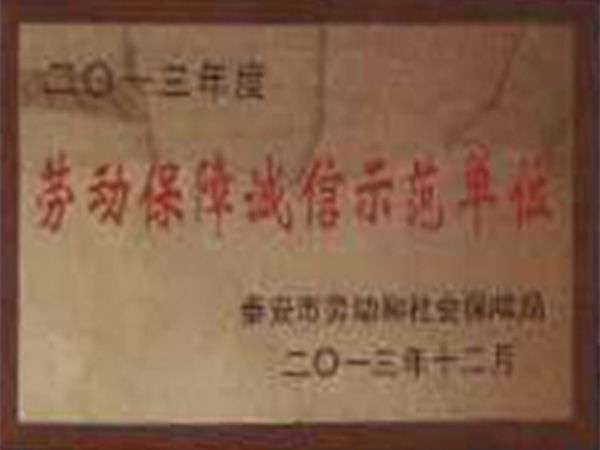 二〇一三年度
劳动保障诚信示范单位
泰安市劳动和社会保障局
二〇一三年十二月